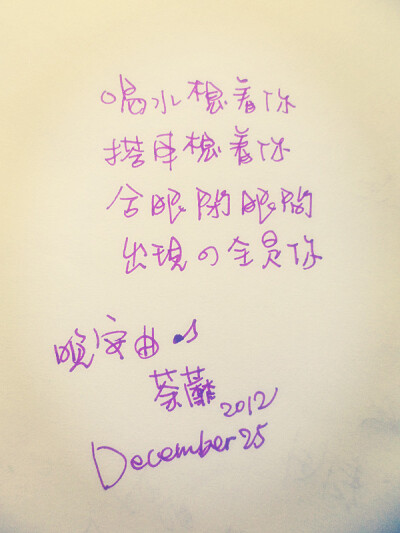 喝水想着你
搭車想着你
合眼閉眼間
出現の全是你
晚安曲♪
荼蘼 2012
December 25